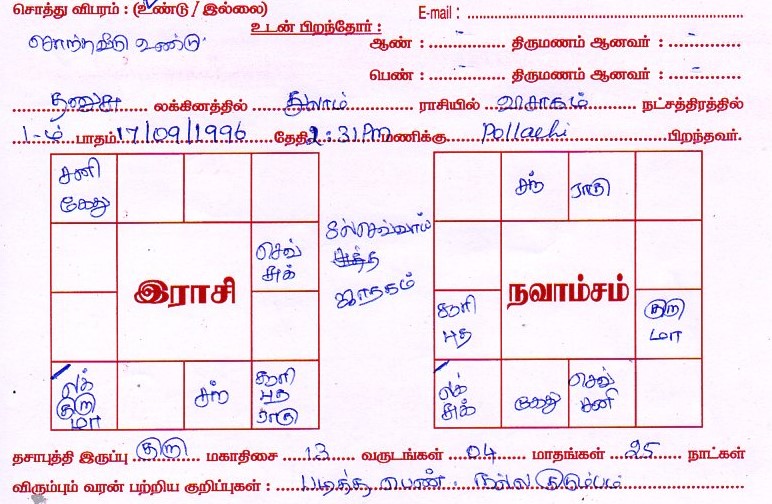 சொத்து விபரம் : (உண்டு / இல்லை)
E-mail :
சொந்தவீடு உண்டு
உடன் பிறந்தோர் :
ஆண் : - திருமணம் ஆனவர் : -
பெண் : - திருமணம் ஆனவர் : -
தனுசு லக்கினத்தில் துலாம் ராசியில் விசாகம் நட்சத்திரத்தில்
1-ம் பாதம் 17/09/1996 தேதி 2:31 PM மணிக்கு Pollachi பிறந்தவர்.
சனி
கேது
செவ்
சுக்
இராசி
லக்
குரு
மா
சந்
சூரி
புத
ராகு
செவ்வாய்
சுத்த
ஜாதகம்
சந்
ராகு
நவாம்சம்
சூரி
புத
குரு
மா
லக்
சுக்
கேது
செவ்
சனி
தசாபுத்தி இருப்பு குரு மகாதிசை 13 வருடங்கள் 04 மாதங்கள் 25 நாட்கள்
விரும்பும் வரன் பற்றிய குறிப்புகள் : படித்த பெண். நல்ல குடும்பம்